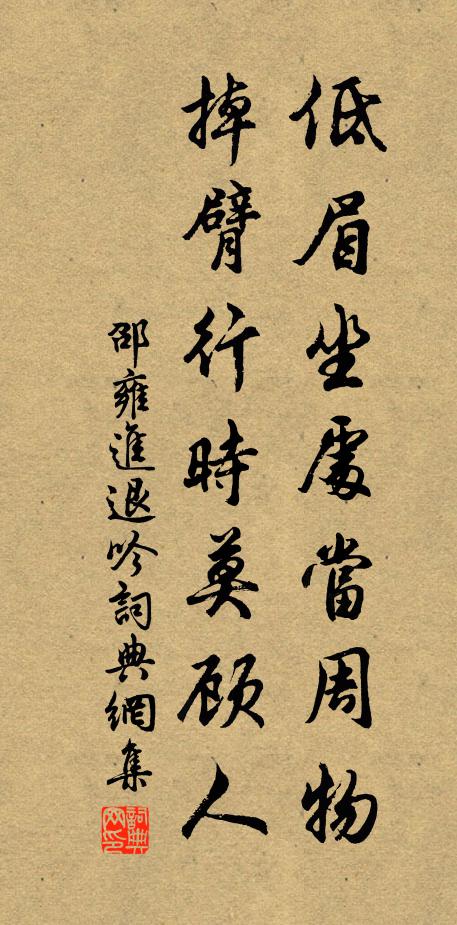 低眉坐處當周物
掉臂行時莫顧人
邵雍進退吟詞典網集
詞典网印